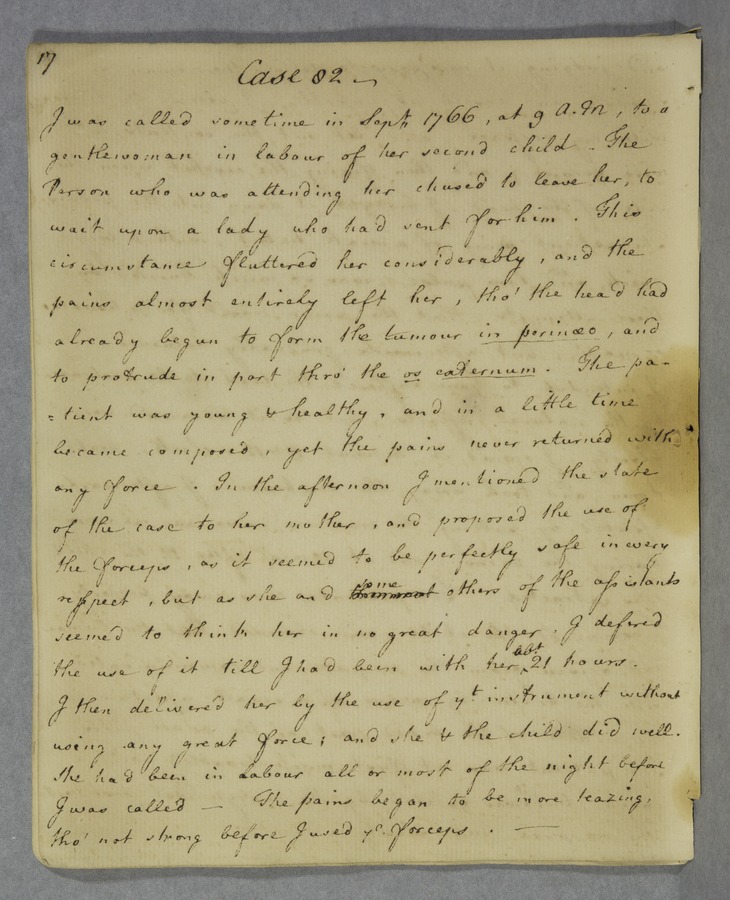 17
Case 82 —
I was called sometime in Septr 1766, at 9 A.M, to a
gentlewoman in labour of her second child. The
Person who was attending her chused to leave her, to
wait upon a lady who had sent for him. This
circumstance fluttered her considerably, and the
pains almost entirely left her, tho' the head had
already begun to form the tumour in perinæo, and
to protrude in part thro' the os externum. The pa-
=tient was young & healthy, and in a little time
became composed, yet the pains never returned with
any force. In the afternoon I mentioned the state
of the case to her mother, and proposed the use of
the forceps, as it seemed to be perfectly safe in every
respect, but as she and some others of the assistants
seemed to think her in no great danger. I defered
the use of it till I had been with her abt 21 hours.
I then delivered her by the use of yt instrument without
using any great force; and she & the child did well.
She had been in Labour all or most of the night before
I was called — The pains began to be more teazing,
tho' not strong before I used ye forceps. —